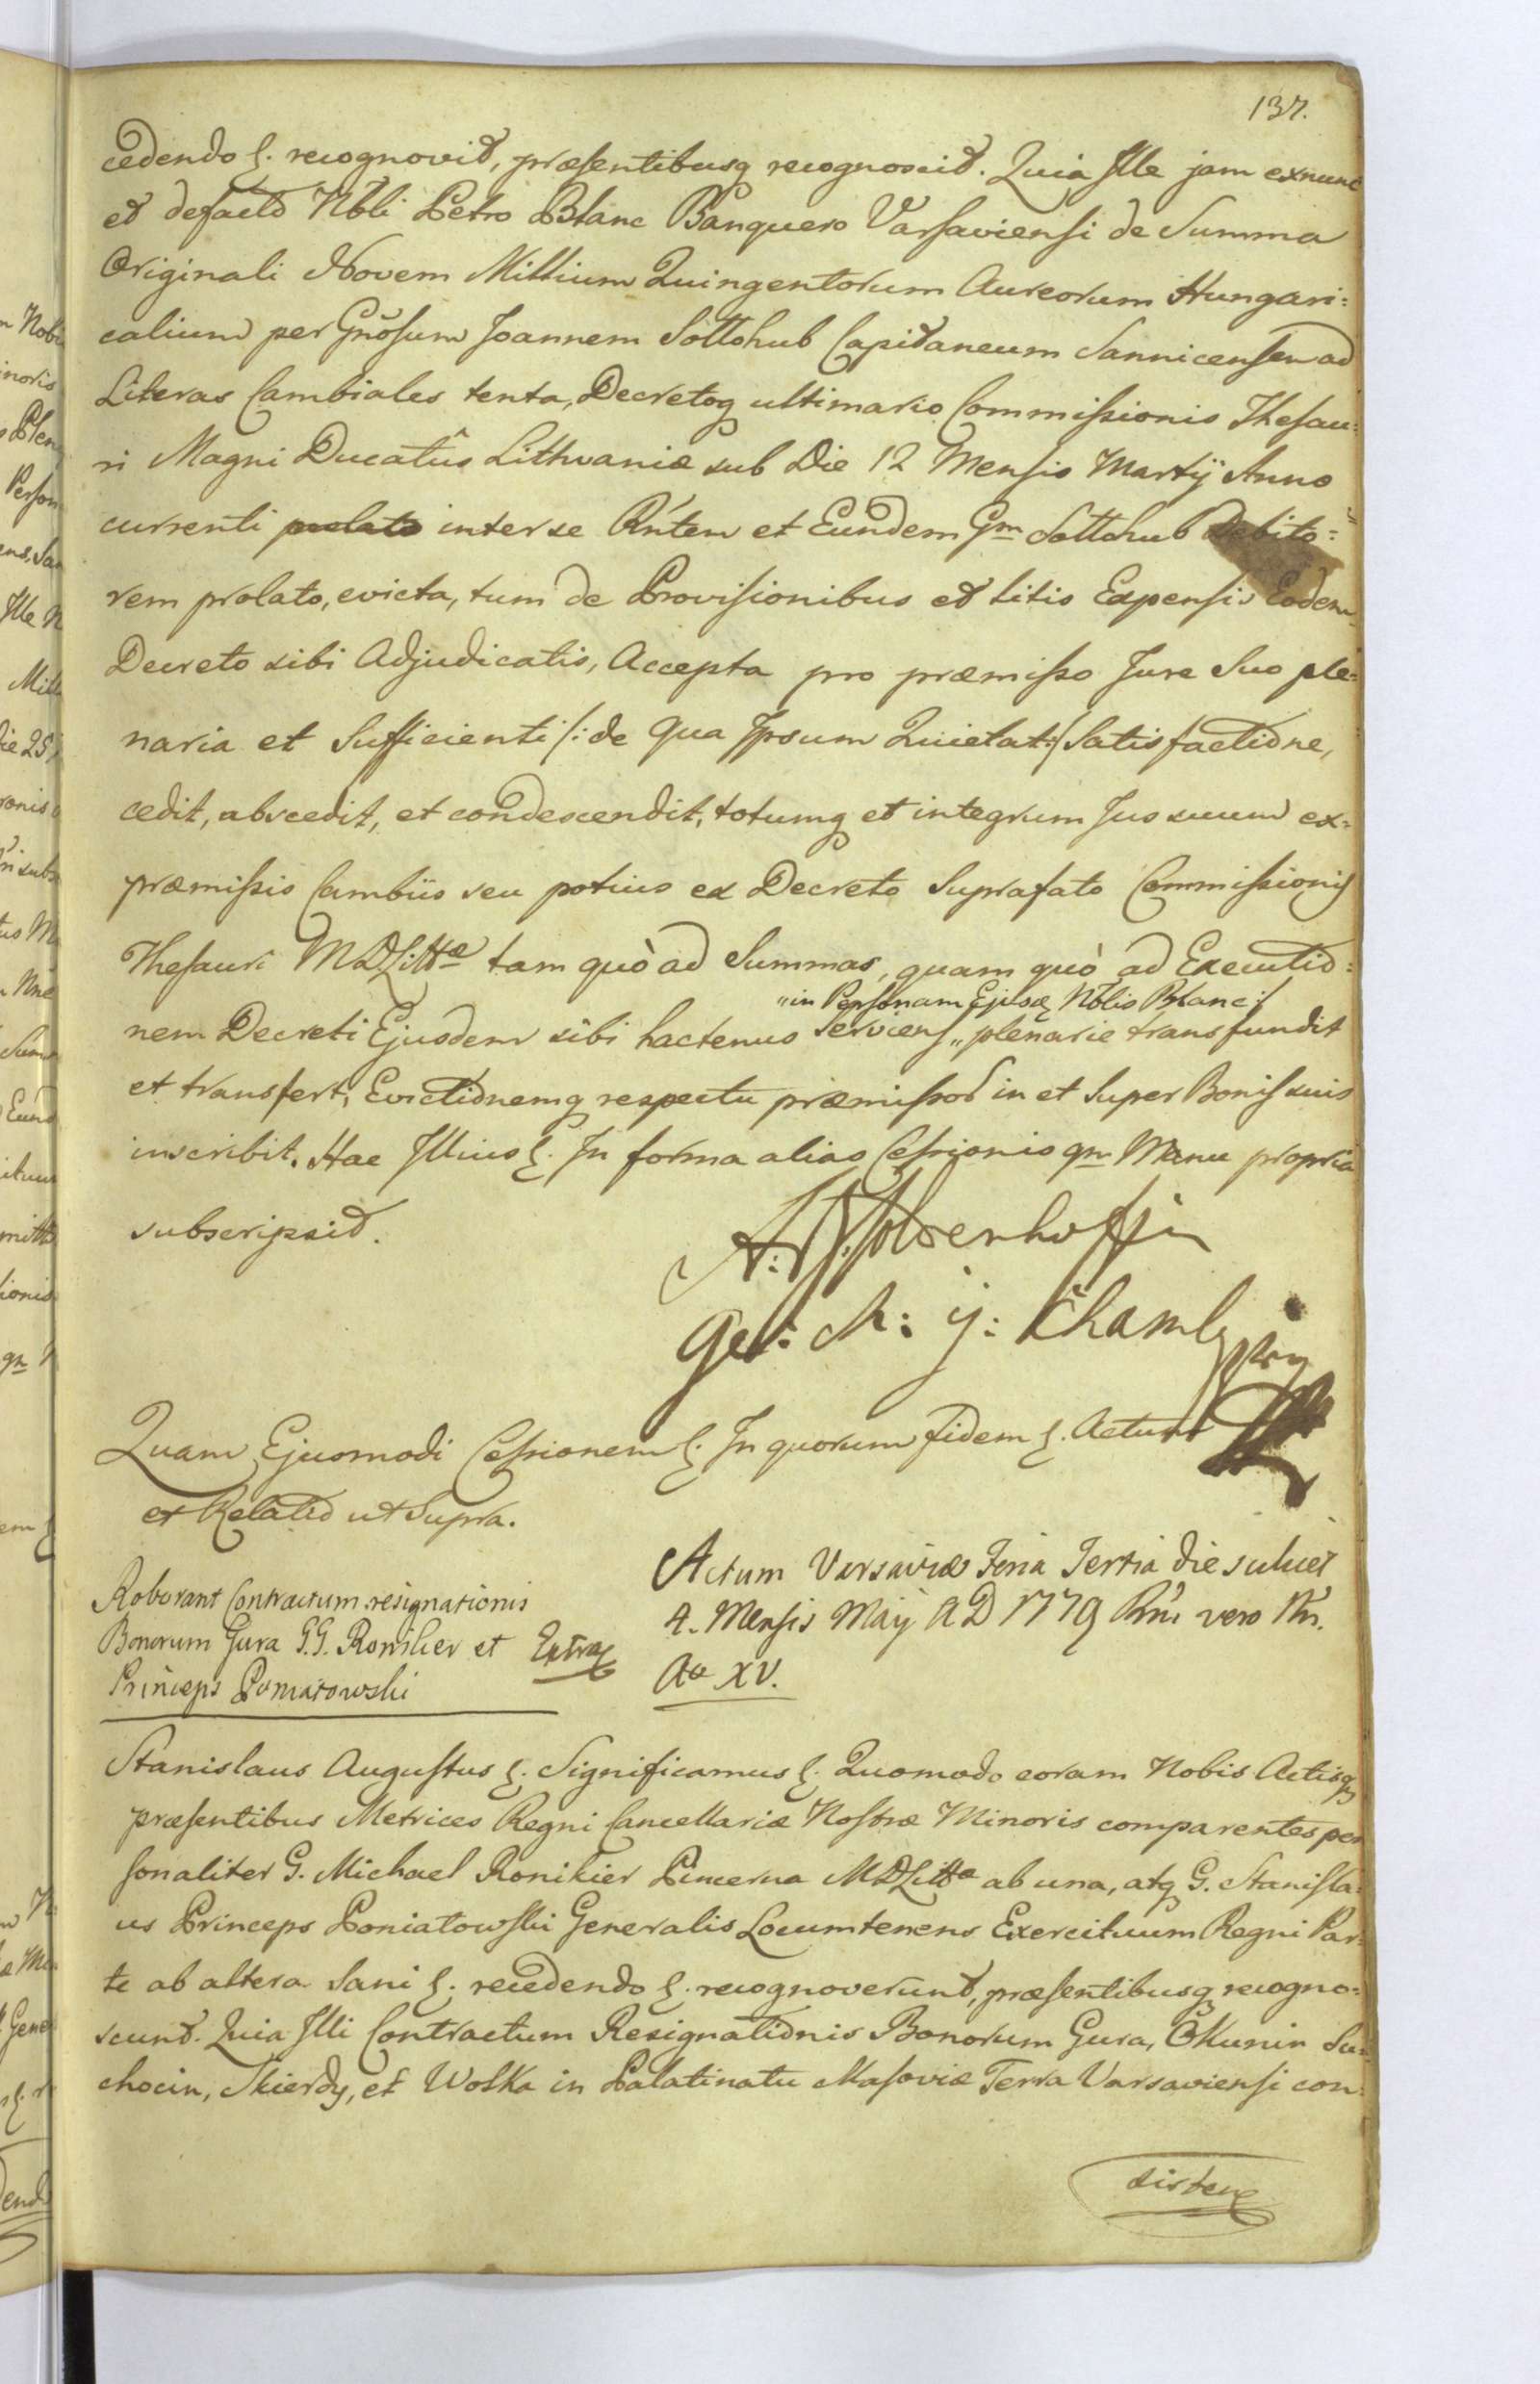 137.
cedendo &. recognovit, præsentibusq recognoscit. Quia Ille jam exnunc
et defacto Nbli Petro Blanc Banquero Varsaviensi de Summa
Originali Novem Millium Quingentorum Aureorum Hungari=
calium per Gnõsum Joannem Sottohub Capitaneum Sannicensem ad
Literas Cambiales tenta, Decretoq ultimario Commissionis Thesau=
ri Magni Ducatûs Lithvaniæ sub Die 12 Mensis Martij Anno
currenti inter se Rntem et Eundem Gm Sottohub Debito=
rem prolato, evicta, tum de Provisionibus et litis Expensis Eodem
Decreto sibi Adjudicatis, Accepta pro præmisso Jure Suo ple=
naria et Sufficienti /: de qua Ipsum Quietat :/ Satisfactione,
cedit, abscedit, et condescendit, totumq et integrum Jus suum ex=
præmissis Cambiis seu potius ex Decreto Suprafato Commissionis
Thesauri MDLittæ tam quò ad Summas, quam quò ad Executio=
"in Personam Ejusq Nblis Blanc :/
nem Decreti Ejusdem sibi hactenus serviens " plenarie transfundit
et transfert, Evictionemq respectu præmissor in et Super Bonis suis
inscribit. Hac Illius &. In forma alias Cessionis qm Manu propria
subscripsit.
Quam Ejusmodi Cessionem &. In quorum fidem &. Actum
et Relatio ut Supra.
Roborant Contractum resignationis
Bonorum Gura G.G. Ronikier et Extrax
Princeps Poniatowski
Actum Varsaviæ Feria Tertia die scilicet
4. Mensis Maij AD 1779 Rni vero Nri.
Ao XV.
Stanislaus Augustus &. Significamus &. Quomodo coram Nobis Actisq
præsentibus Metrices Regni Cancellariæ Nostræ Minoris comparentes per
sonaliter G. Michael Ronikier Pincerna MDLittæ ab una, atq G. Stanisla=
us Princeps Poniatowski Generalis Locumtenens Exercituum Regni Par=
te ab altera Sani &. recedendo &. recognoverunt, præsentibusq recogno=
scunt. Quia Illi Contractum Resignationis Bonorum Gura, Okunin Su=
chocin, Skierdy, et Wolka in Palatinatu Masoviæ Terra Varsaviensi con=
sisten